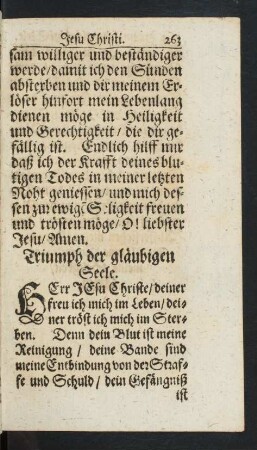 Jesu Christi. 263
sam williger und beständiger
werde/damit ich den Sünden
absterben und dir meinem Er-
löser hinfort mein Lebenlang
dienen möge in Heiligkeit
und Gerechtigkeit / die dir ge-
fällig ist. Endlich hilff mir
daß ich der Krafft deines blu-
tigen Todes in meiner letzten
Noht geniessen/ und mich des-
sen zur ewigē Seligkeit freuen
und trösten möge/ O! liebster
Jesu/ Amen.
Triumph der gläubigen
Seele.
HErr JEsu Christe/ deiner
freu ich mich im Leben/ dei-
ner tröst ich mich im Ster-
ben. Denn dein Blut ist meine
Reinigung / deine Bande sind
meine Entbindung von der Straf-
fe und Schuld / dein Gefängniß
ist